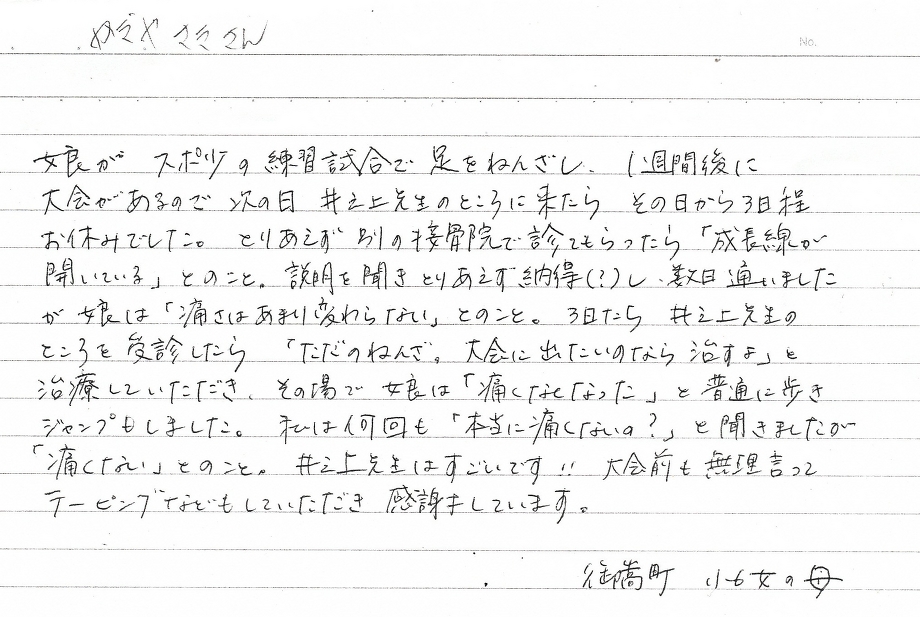 No.
さん
娘が スポーツの練習試合で足をねんざし、1週間後に
大会があるので次の日 井之上先生のところに来たら その日から3日程
お休みでした。とりあえず別の接骨院で診てもらったら「成長線が
開いている」とのこと。説明を聞きとりあえず納得(?)し、数日通いました
が娘は「痛さはあまり変わらない」とのこと。3日たち 井之上先生の
ところを受診したら 「ただのねんざ。大会に出たいのなら治すよ」と
治療していただき、その場で娘は「痛くなくなった」と普通に歩き
ジャンプもしました。私は何回も「本当に痛くないの?」と聞きましたが
「痛くない」とのこと。井之上先生はすごいです!! 大会前も無理言って
テーピングなどもしていただき感謝しています。
町 小6女の母